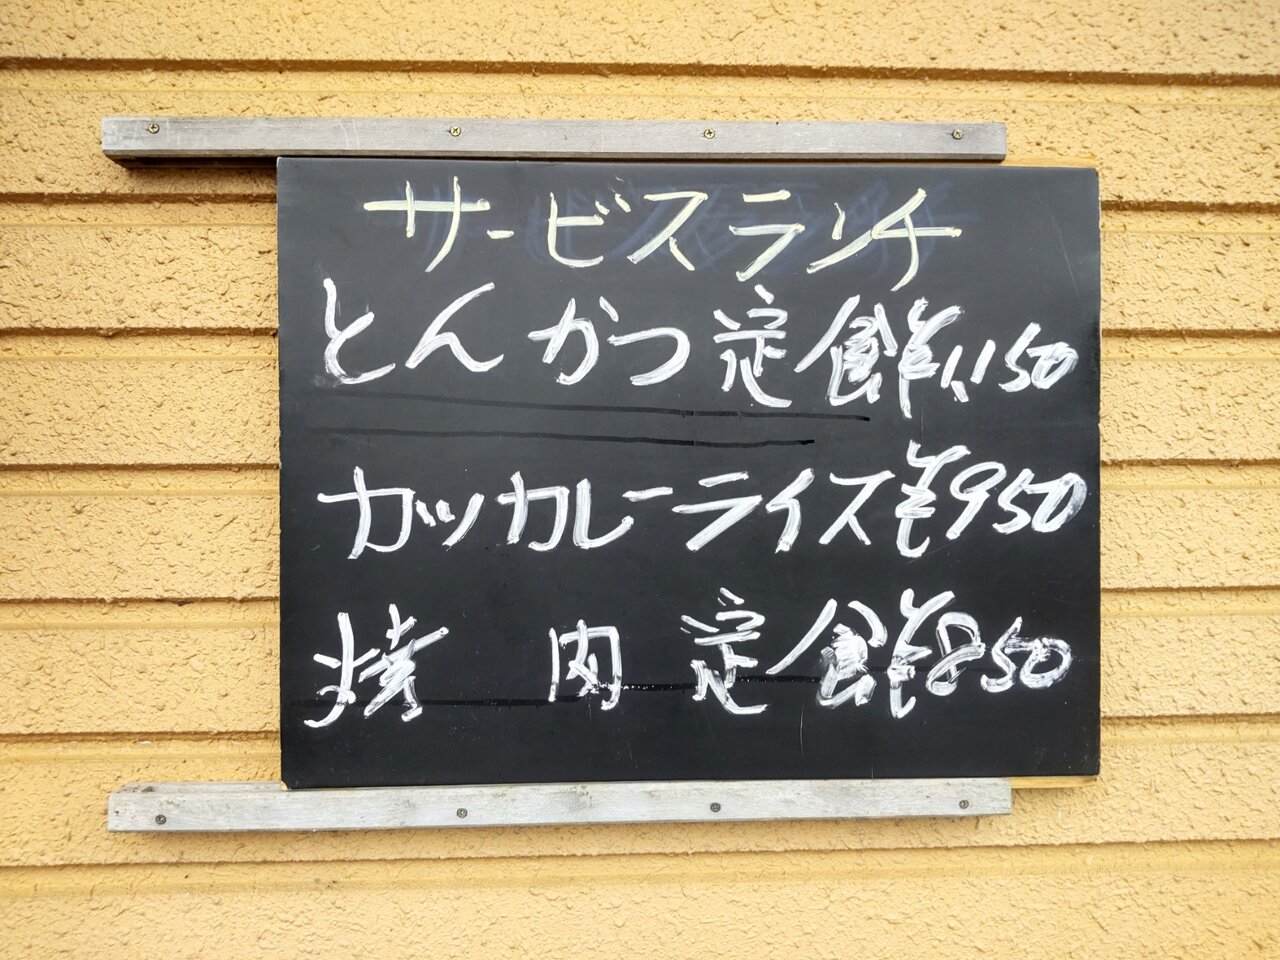 サービスランチ
とんかつ定食¥1,150
カツカレーライス¥950
焼肉定食¥850